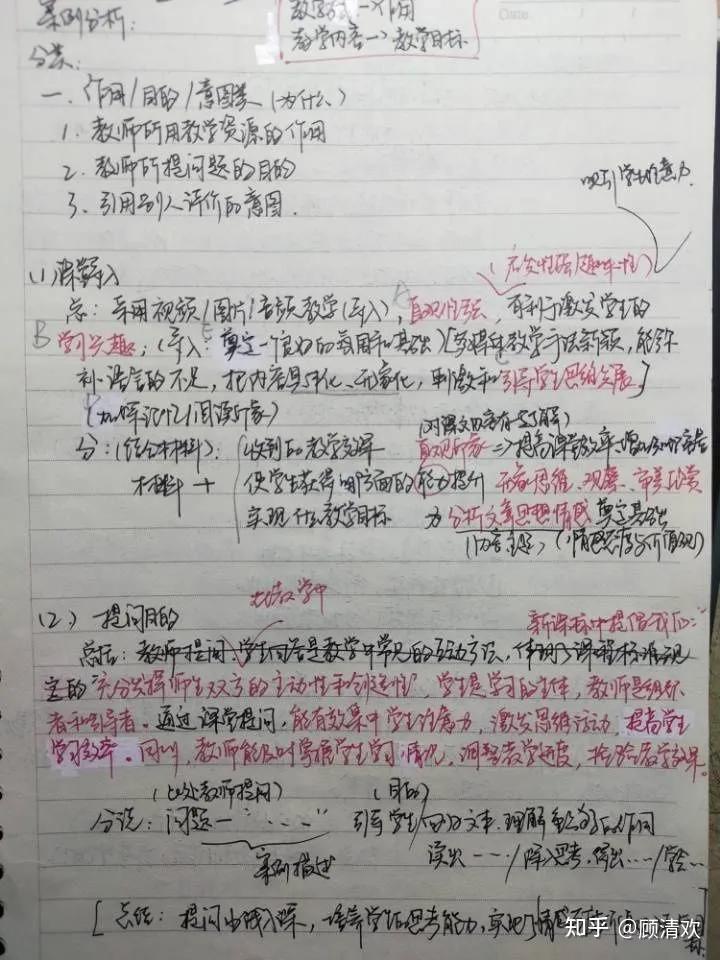 案例分析:
教学方式→作用
教学内容→教学目标
Date
分类:
一. 作用/目的/意图类(为什么)
1. 教师所用教学资源的作用
2. 教师所提问题的目的
3. 引用别人评价的意图.
吸引学生注意力.
(1) 课堂导入
(启发性强/趣味性)
总: 采用视频/图片/音频教学(导入), 直观性强, 有利于激发学生的
学习兴趣; (导入: 奠定一个良好的氛围和基础)[多媒体教学手法新颖, 能弥
补语言的不足, 把内容具体化、形象化, 刺激和引导学生思维发展]
(加深记忆/阅读印象)
分: (结合材料): 收到的教学效果 直观印象 ⇒提高课堂效率
(对课文内容有了解)
材料 + 使学生获得哪方面的能力提升 形象思维、观察、审美
实现什么教学目标 为分析文章思想情感奠定基础
(内容主题) (情感态度与价值观)
(2) 提问目的
在教学中
新课标中提倡我们:"
总括: 教师提问、学生回答是教学中常见的互动方法, 体现了课程标准规
定的"充分发挥师生双方的主动性和创造性". 学生是学习的主体, 教师是组织
者和引导者. 通过课堂提问, 能有效集中学生注意力, 激发思维活动, 提高学生
学习效率. 同时, 教师能及时掌握学生学习情况, 调整教学进度, 检验教学效果.
(此处教师提问) (目的)
分说: 问题一"……" 引导学生 文本, 理解 的作用
案例描述
读出……/深入思考, 得出……/学会…
[总结: 提问由浅入深, 培养学生思考能力, 实现了情感
知乎 @顾清欢